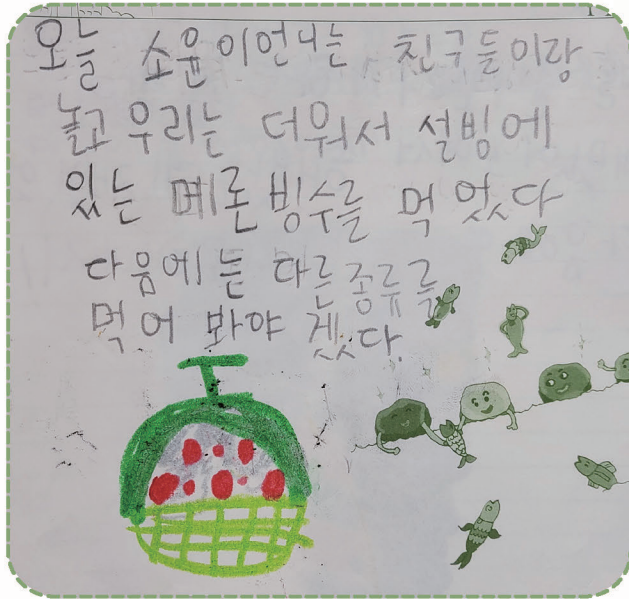 오늘 소윤이언니는 친구들이랑
놀고 우리는 더워서 설빙에
있는 메론빙수를 먹었다
다음에는 다른종류를
먹어 봐야 겠다.